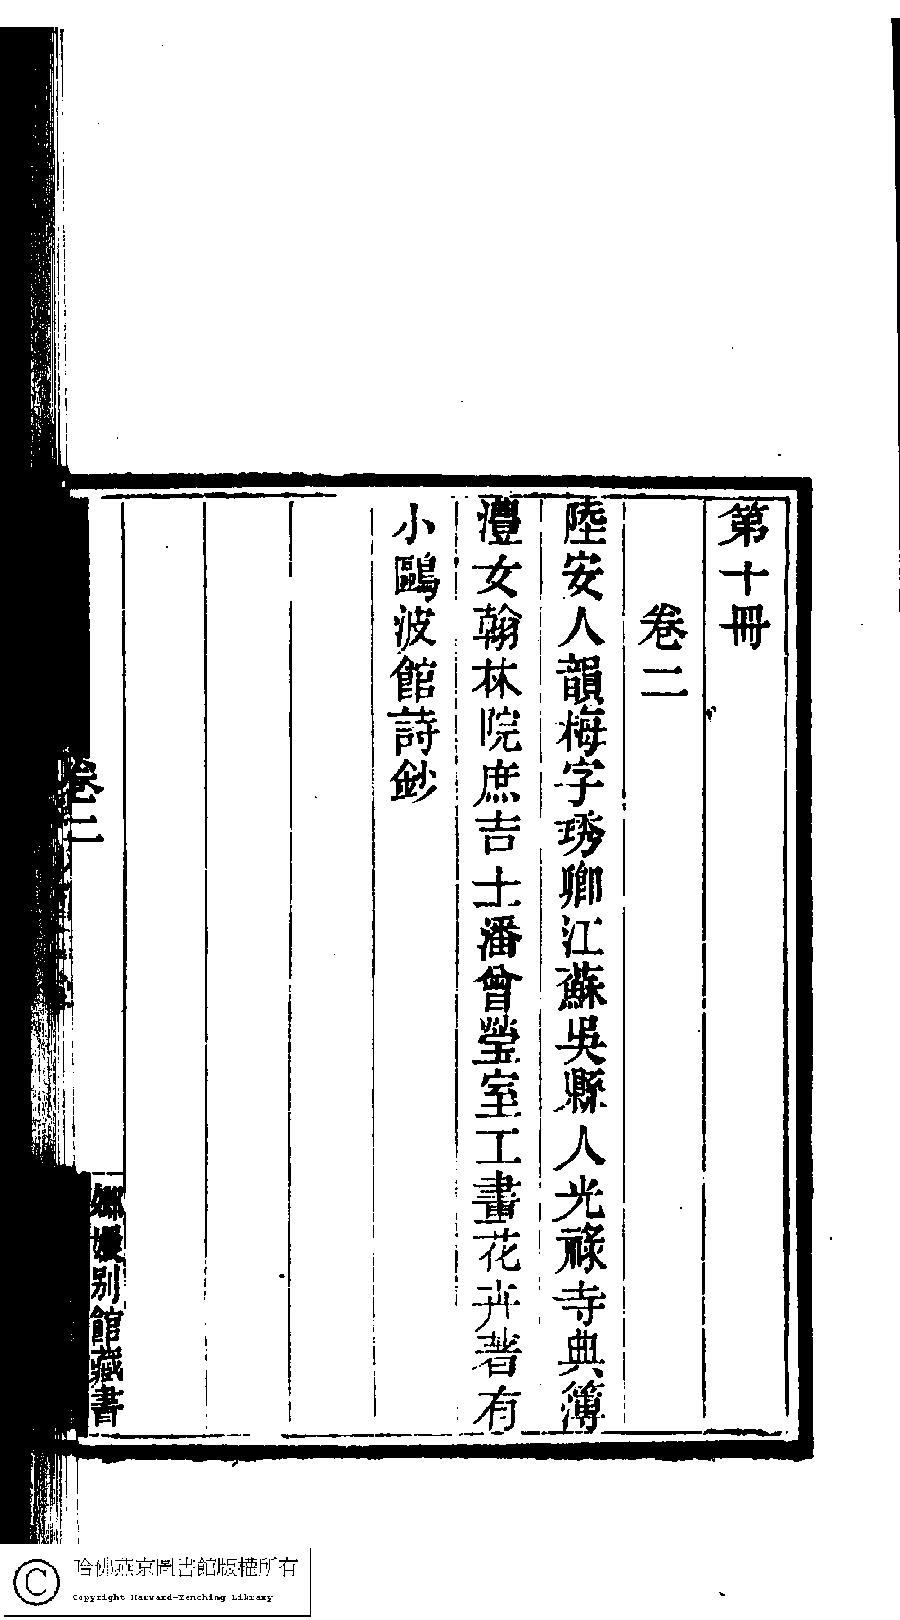 第十冊
卷二
陸安人韻梅字琇卿江蘇吳縣人光祿寺典簿
灃女翰林院庶吉士潘曾瑩室工畫花卉著有
小鷗波館詩鈔
卷二
嫏嬛別館藏書
哈佛燕京圖書館版權所有
Copyright Harvard-Yenching Library